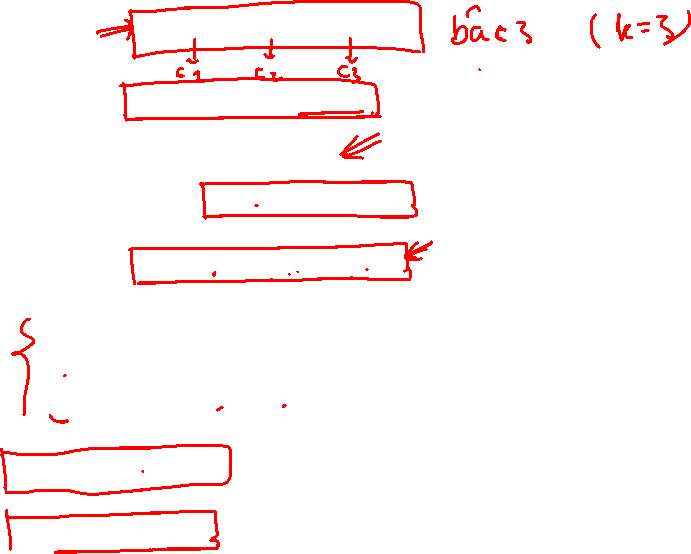 bậc 3 (k=3)
c1 c2 c3